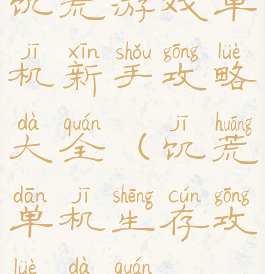 饥荒游戏单
jī xīn shǒu gōng lüè
机新手攻略
dà quán jī huāng
大全（饥荒
dān jī shēng cún gōng
单机生存攻
lüè dà quán